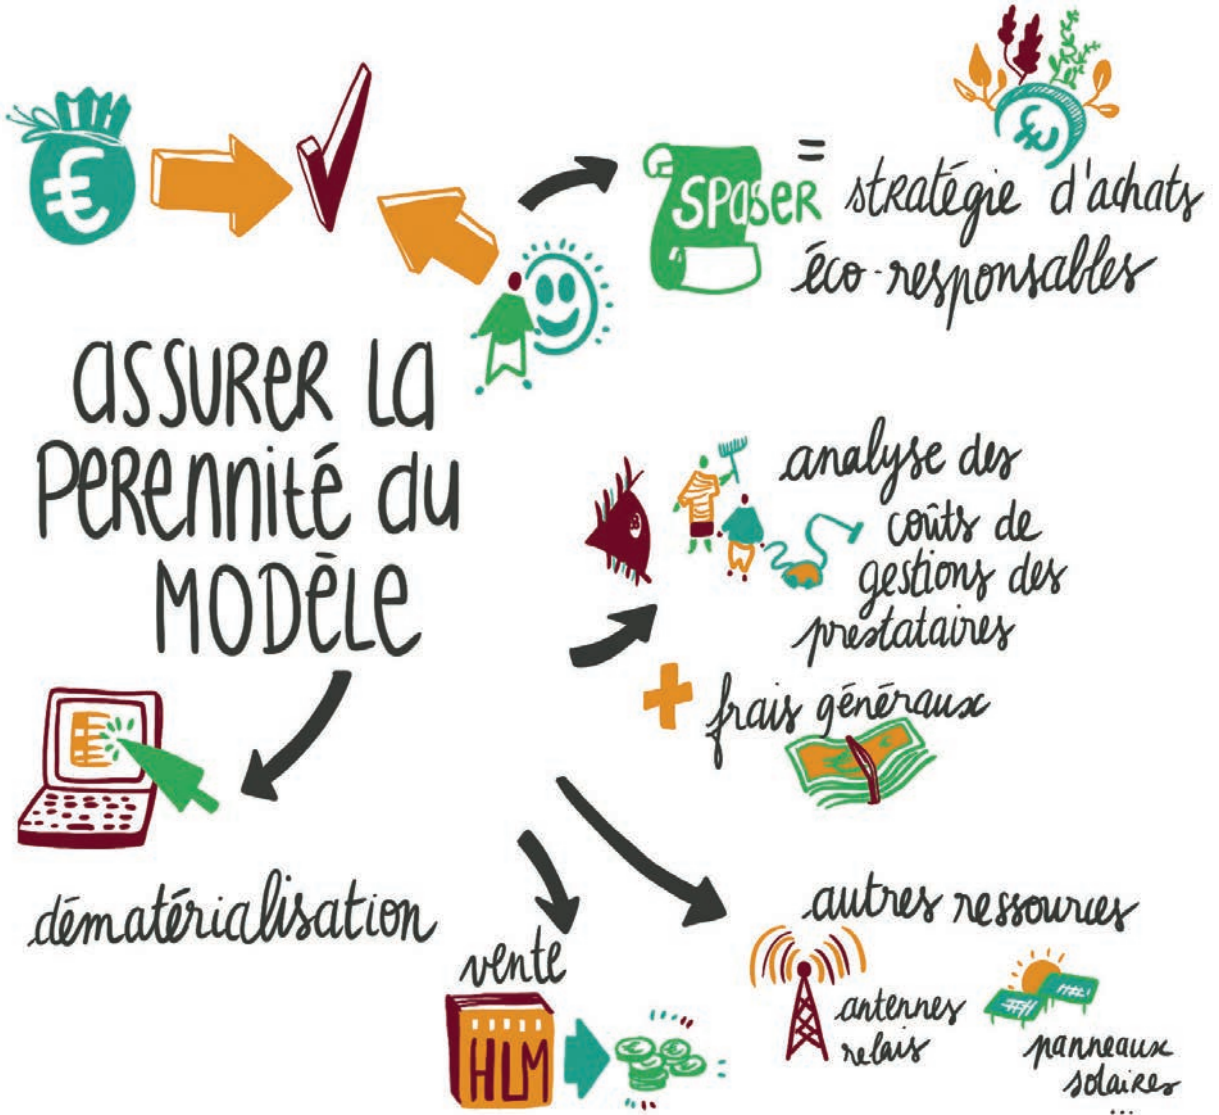 €
SPASER = stratégie d'achats
éco-responsables
€
ASSURER LA
PERENNITÉ du
MODÈLE
analyse des
coûts de
gestions des
prestataires
+ frais généraux
dématérialisation
vente
HLM
autres ressources
antennes
relais
panneaux
solaires
...